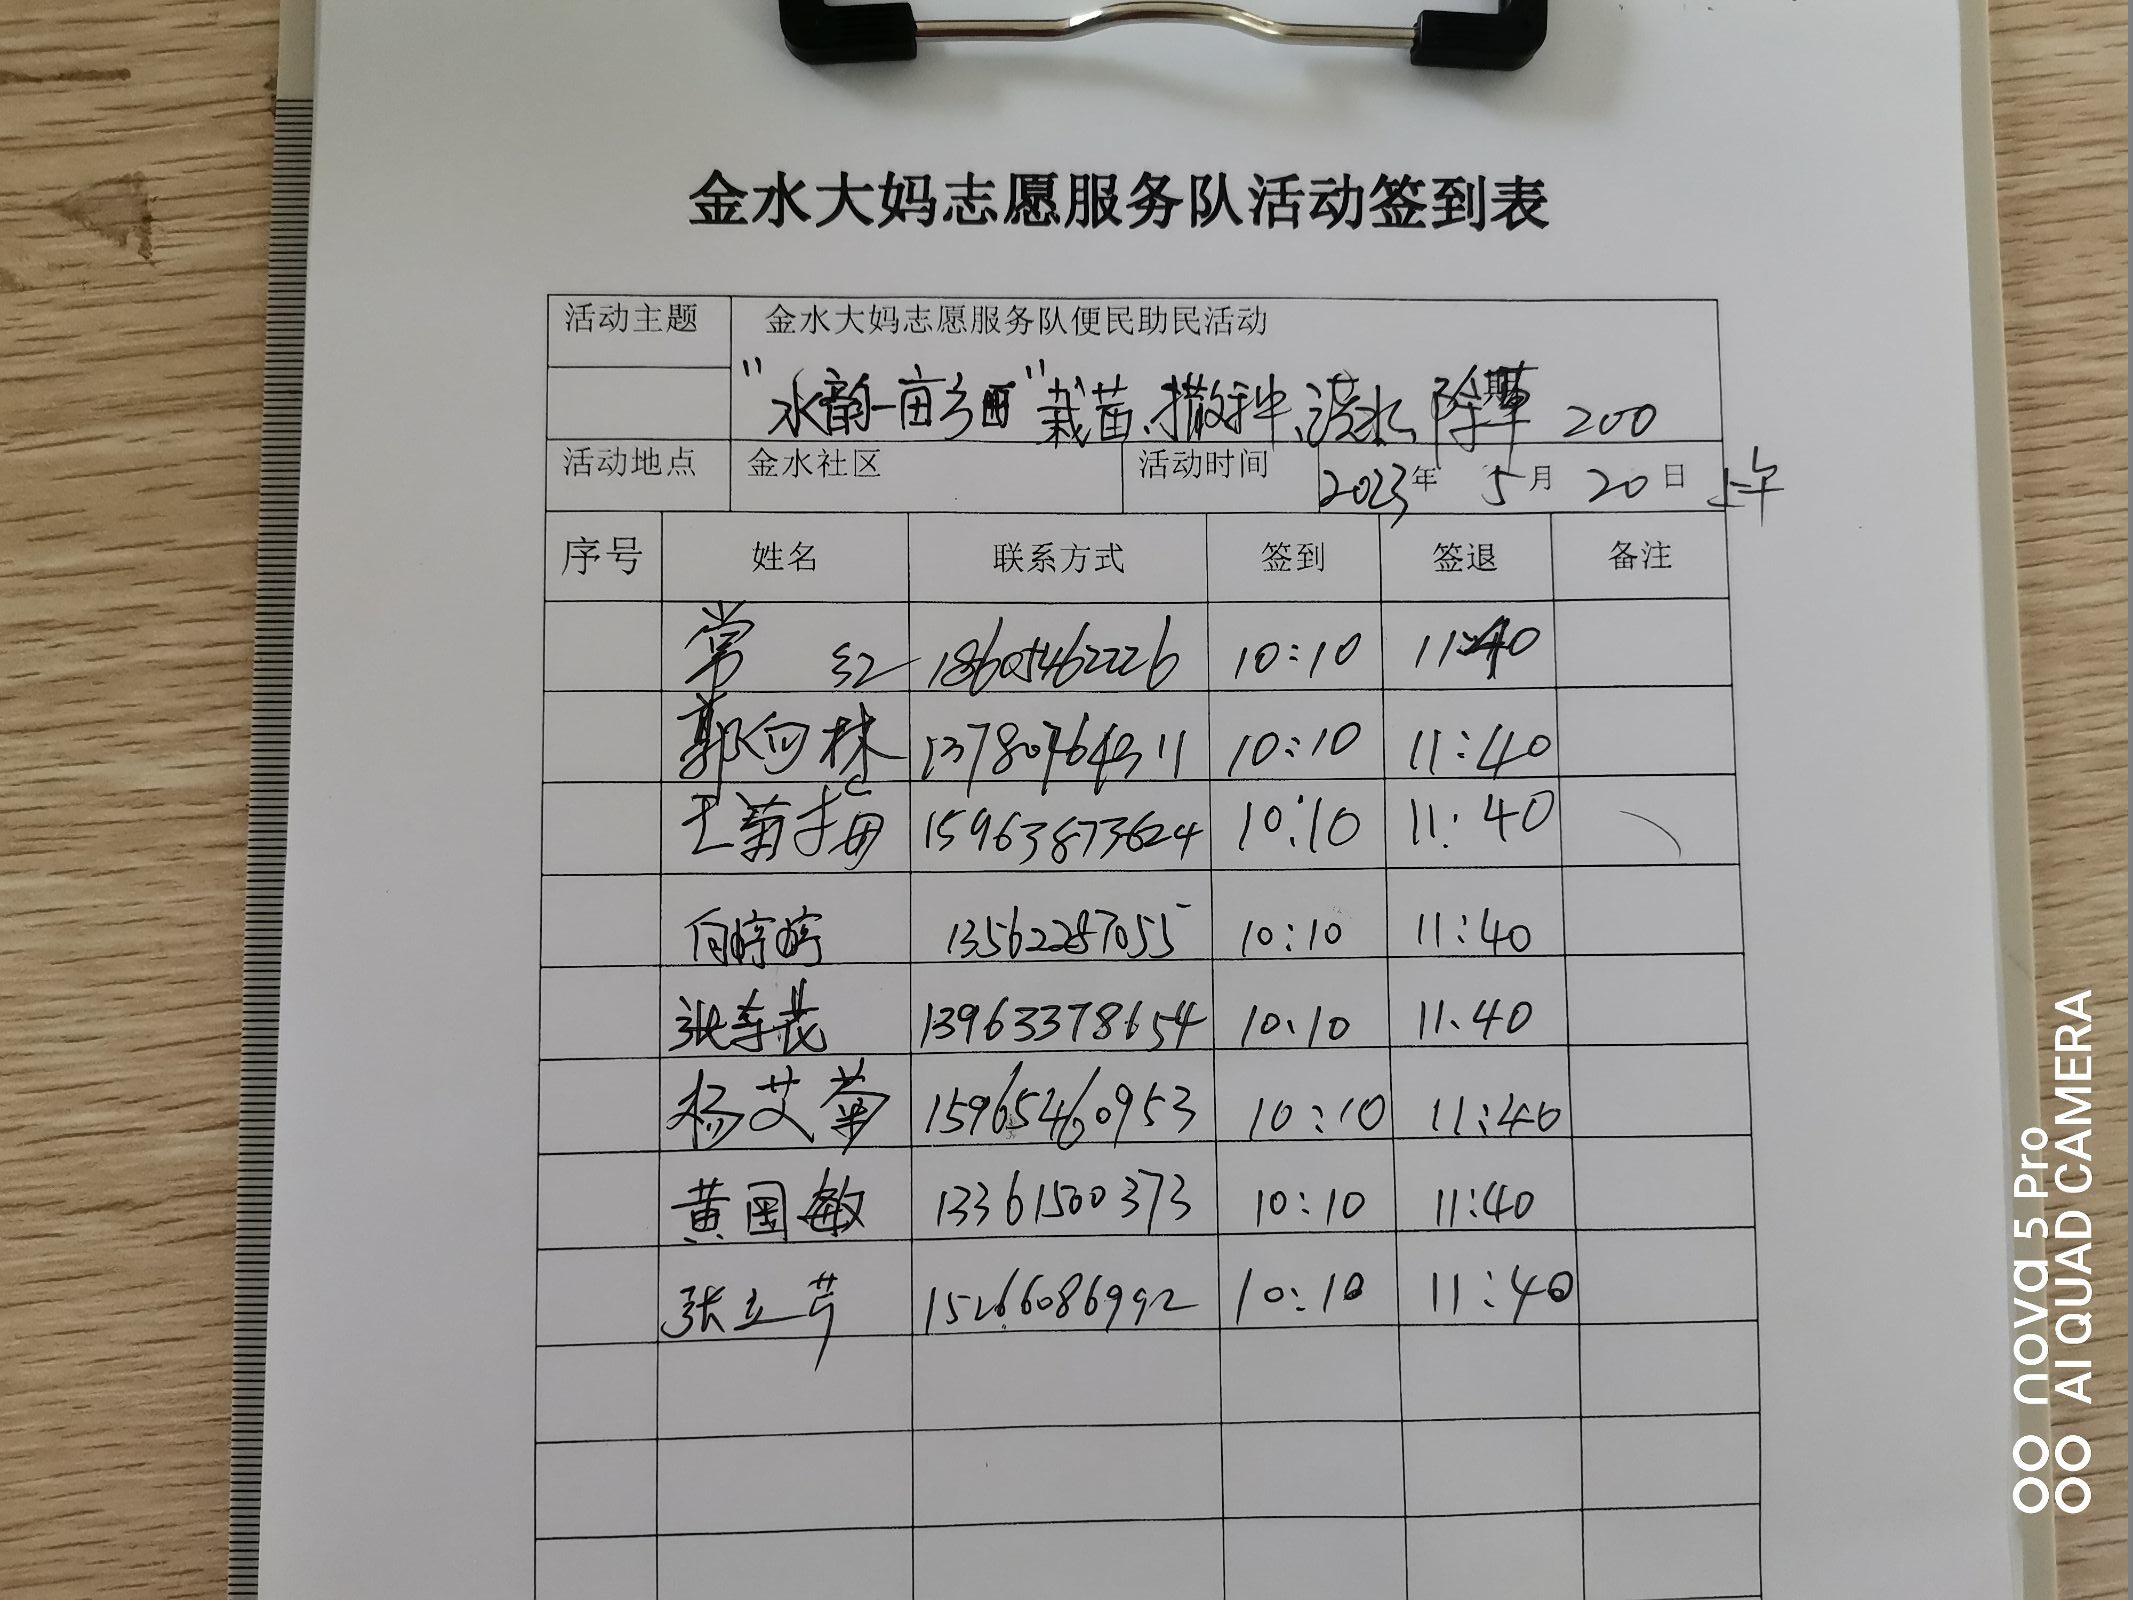 金水大妈志愿服务队活动签到表
活动主题 金水大妈志愿服务队便民助民活动
"水韵一亩乡田"栽苗、撒种、浇水、除草 200
活动地点 金水社区 活动时间 2023年 5月 20日 上午
序号 姓名 联系方式 签到 签退 备注
常 红 18605462226 10:10 11:40
郭向林 10:10 11:40
王菊梅 15963873624 10:10 11:40
向婷婷 13562287055 10:10 11:40
13963378654 10:10 11:40
杨艾菊 15965460953 10:10 11:40
黄国敏 13361500373 10:10 11:40
张立芹 15266086992 10:10 11:40
nova 5 Pro
AI QUAD CAMERA